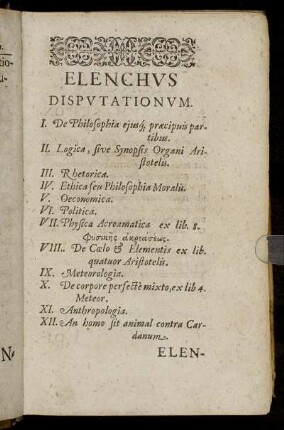 ELENCHVS
DISPVTATIONVM.
I. De Philosophia ejusq́; præcipuis par-
tibus.
II. Logica, sive Synopsis Organi Ari-
stotelis.
III. Rhetorica.
IV. Ethica seu Philosophia Moralis.
V. Oeconomica.
VI. Politica.
VII. Physica Acroamatica ex lib. 8.
φυσικῆς ἀκροάσεως.
VIII. De Cœlo & Elementis ex lib.
quatuor Aristotelis.
IX. Meteorologia.
X. De corpore perfectè mixto, ex lib 4.
Meteor.
XI. Anthropologia.
XII. An homo sit animal contra Car-
danum.
ELEN-